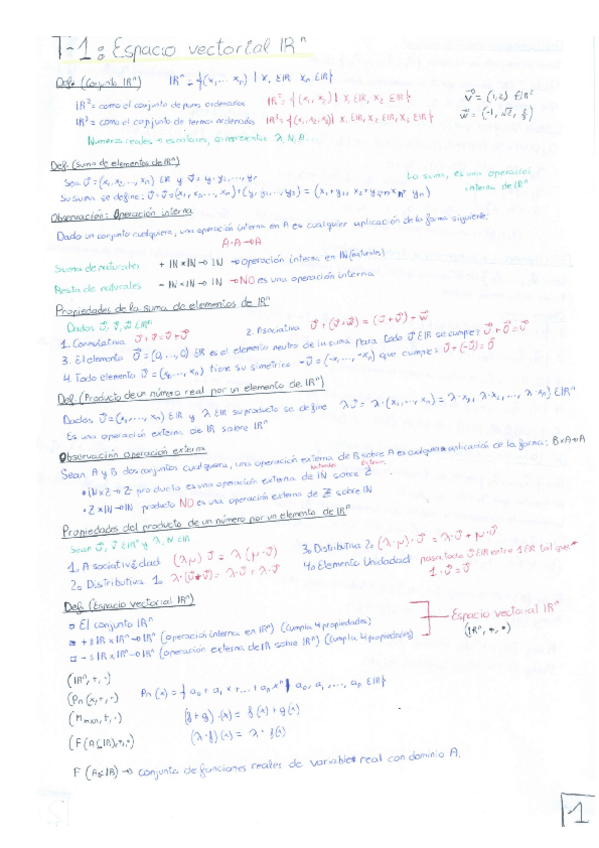 T-1: Espacio vectorial ℝⁿ
Def. (Conjunto ℝⁿ) ℝⁿ = {(x₁,... xₙ) | x₁ ∈ ℝ xₙ ∈ ℝ}
ℝ² = como el conjunto de pares ordenados ℝ² = {(x₁, x₂) | x₁ ∈ ℝ, x₂ ∈ ℝ} v⃗ = (1,2) ∈ ℝ²
ℝ³ = como el conjunto de ternas ordenadas ℝ³ = {(x₁, x₂, x₃) | x₁ ∈ ℝ, x₂ ∈ ℝ, x₃ ∈ ℝ}
Numeros reales → escalares,
Def. (suma de elementos de ℝⁿ)
Sea u⃗ = (x₁, x₂, ..., xₙ) ∈ ℝ y v⃗ = y₁, y₂, ..., yₙ La suma, es una operación
Su suma se define: interna de ℝⁿ
Observación: Operación interna
Dado un conjunto cualquiera, una operación interna en A es cualquier aplicación de la forma siguiente:
A·A→A
Suma de naturales + ℕ×ℕ→ℕ →operación interna en ℕ (naturales)
Resta de naturales - ℕ×ℕ→ℕ →NO es una operación interna
Propiedades de la suma de elementos de ℝⁿ
Dados
1. Conmutativa 2. Asociativa
3. El elemento 0⃗ = (0, ..., 0) ∈ ℝ es el elemento neutro de la suma para todo v⃗ ∈ ℝ se cumple:
4. Todo elemento tiene su simétrico que cumple:
Def. (Producto de un número real por un elemento de ℝⁿ)
Dados v⃗ = (x₁, ..., xₙ) ∈ ℝ y λ ∈ ℝ su producto se define λv⃗ = λ·(x₁, ..., xₙ) = λ·x₁, λ·x₂, ..., λ·xₙ) ∈ ℝⁿ
Es una operación externa de ℝ sobre ℝⁿ
Observación operación externa
Sean A y B dos conjuntos cualquiera, una operación externa de B sobre A es cualquier aplicación de la forma: B×A→A
• ℕ×ℤ→ℤ producto es una operación externa de ℕ sobre ℤ
• ℤ×ℕ→ℕ producto NO es una operación externa de ℤ sobre ℕ
Propiedades del producto de un número por un elemento de ℝⁿ
Sean
1. Asociatividad (λμ) v⃗ = λ(μ·v⃗) 3. Distributiva 2. (λ·μ)·v⃗ = λ·v⃗ + μ·v⃗
2. Distributiva 1. 4. Elemento Unidad para todo v⃗ ∈ ℝ 1 ∈ ℝ tal que
1·v⃗ = v⃗
Def. (Espacio vectorial ℝⁿ)
El conjunto ℝⁿ
(operación interna en ℝⁿ) (Cumple 4 propiedades) Espacio vectorial ℝⁿ
(operación externa de ℝ sobre ℝⁿ) (Cumple 4 propiedades) (ℝⁿ, +, •)
(ℝⁿ, +, ·)
(Pₙ(x), +, ·) Pₙ(x) = { a₀ + a₁x + ... + aₙxⁿ | a₀, a₁, ..., aₙ ∈ ℝ}
(Mₘₓₙ, +, ·) (f + g)·(x) = f(x) + g(x)
(F(A⊆ℝ), +, ·) (λ·f)(x) = λ·f(x)
F(A⊆ℝ) → conjunto de funciones reales de variable real con dominio A.
1